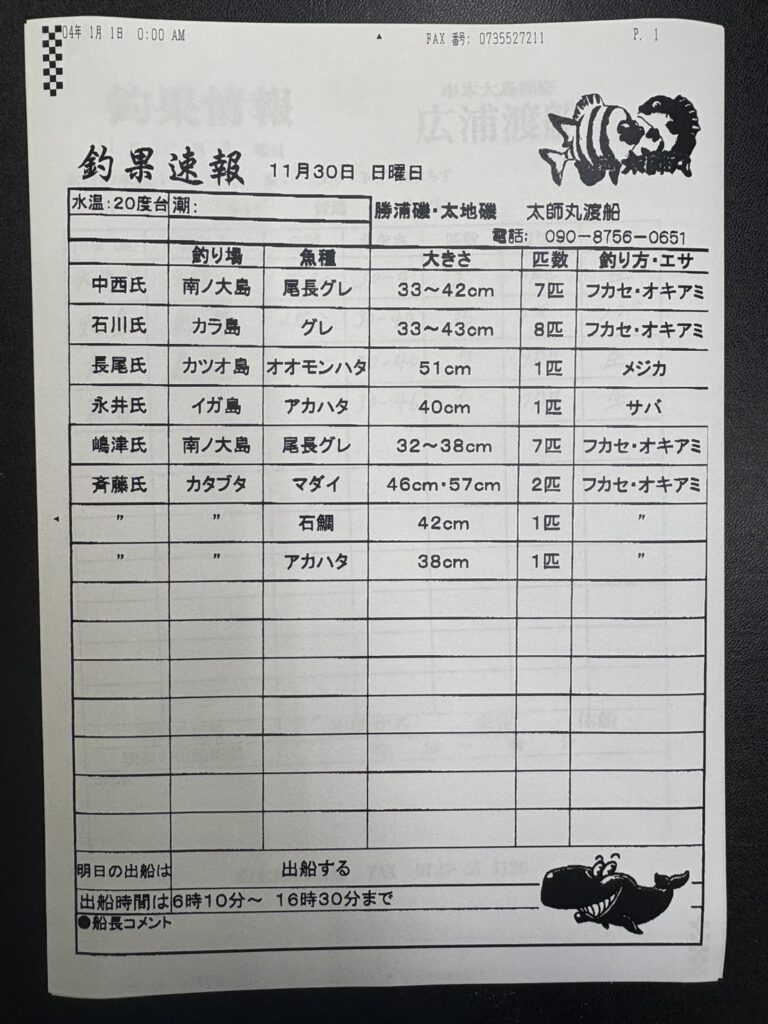 04年 1月 1日 0:00 AM FAX 番号: 0735527211 P. 1
釣果速報 11月30日 日曜日
水温:20度台 潮:
勝浦磯・太地磯 太師丸渡船
電話: 090-8756-0651
釣り場 魚種 大きさ 匹数 釣り方・エサ
中西氏 南ノ大島 尾長グレ 33～42cm 7匹 フカセ・オキアミ
石川氏 カラ島 グレ 33～43cm 8匹 フカセ・オキアミ
長尾氏 カツオ島 オオモンハタ 51cm 1匹 メジカ
永井氏 イガ島 アカハタ 40cm 1匹 サバ
嶋津氏 南ノ大島 尾長グレ 32～38cm 7匹 フカセ・オキアミ
斉藤氏 カタブタ マダイ 46cm・57cm 2匹 フカセ・オキアミ
〃 〃 石鯛 42cm 1匹 〃
〃 〃 アカハタ 38cm 1匹 〃
明日の出船は 出船する
出船時間は 6時10分～ 16時30分まで
●船長コメント